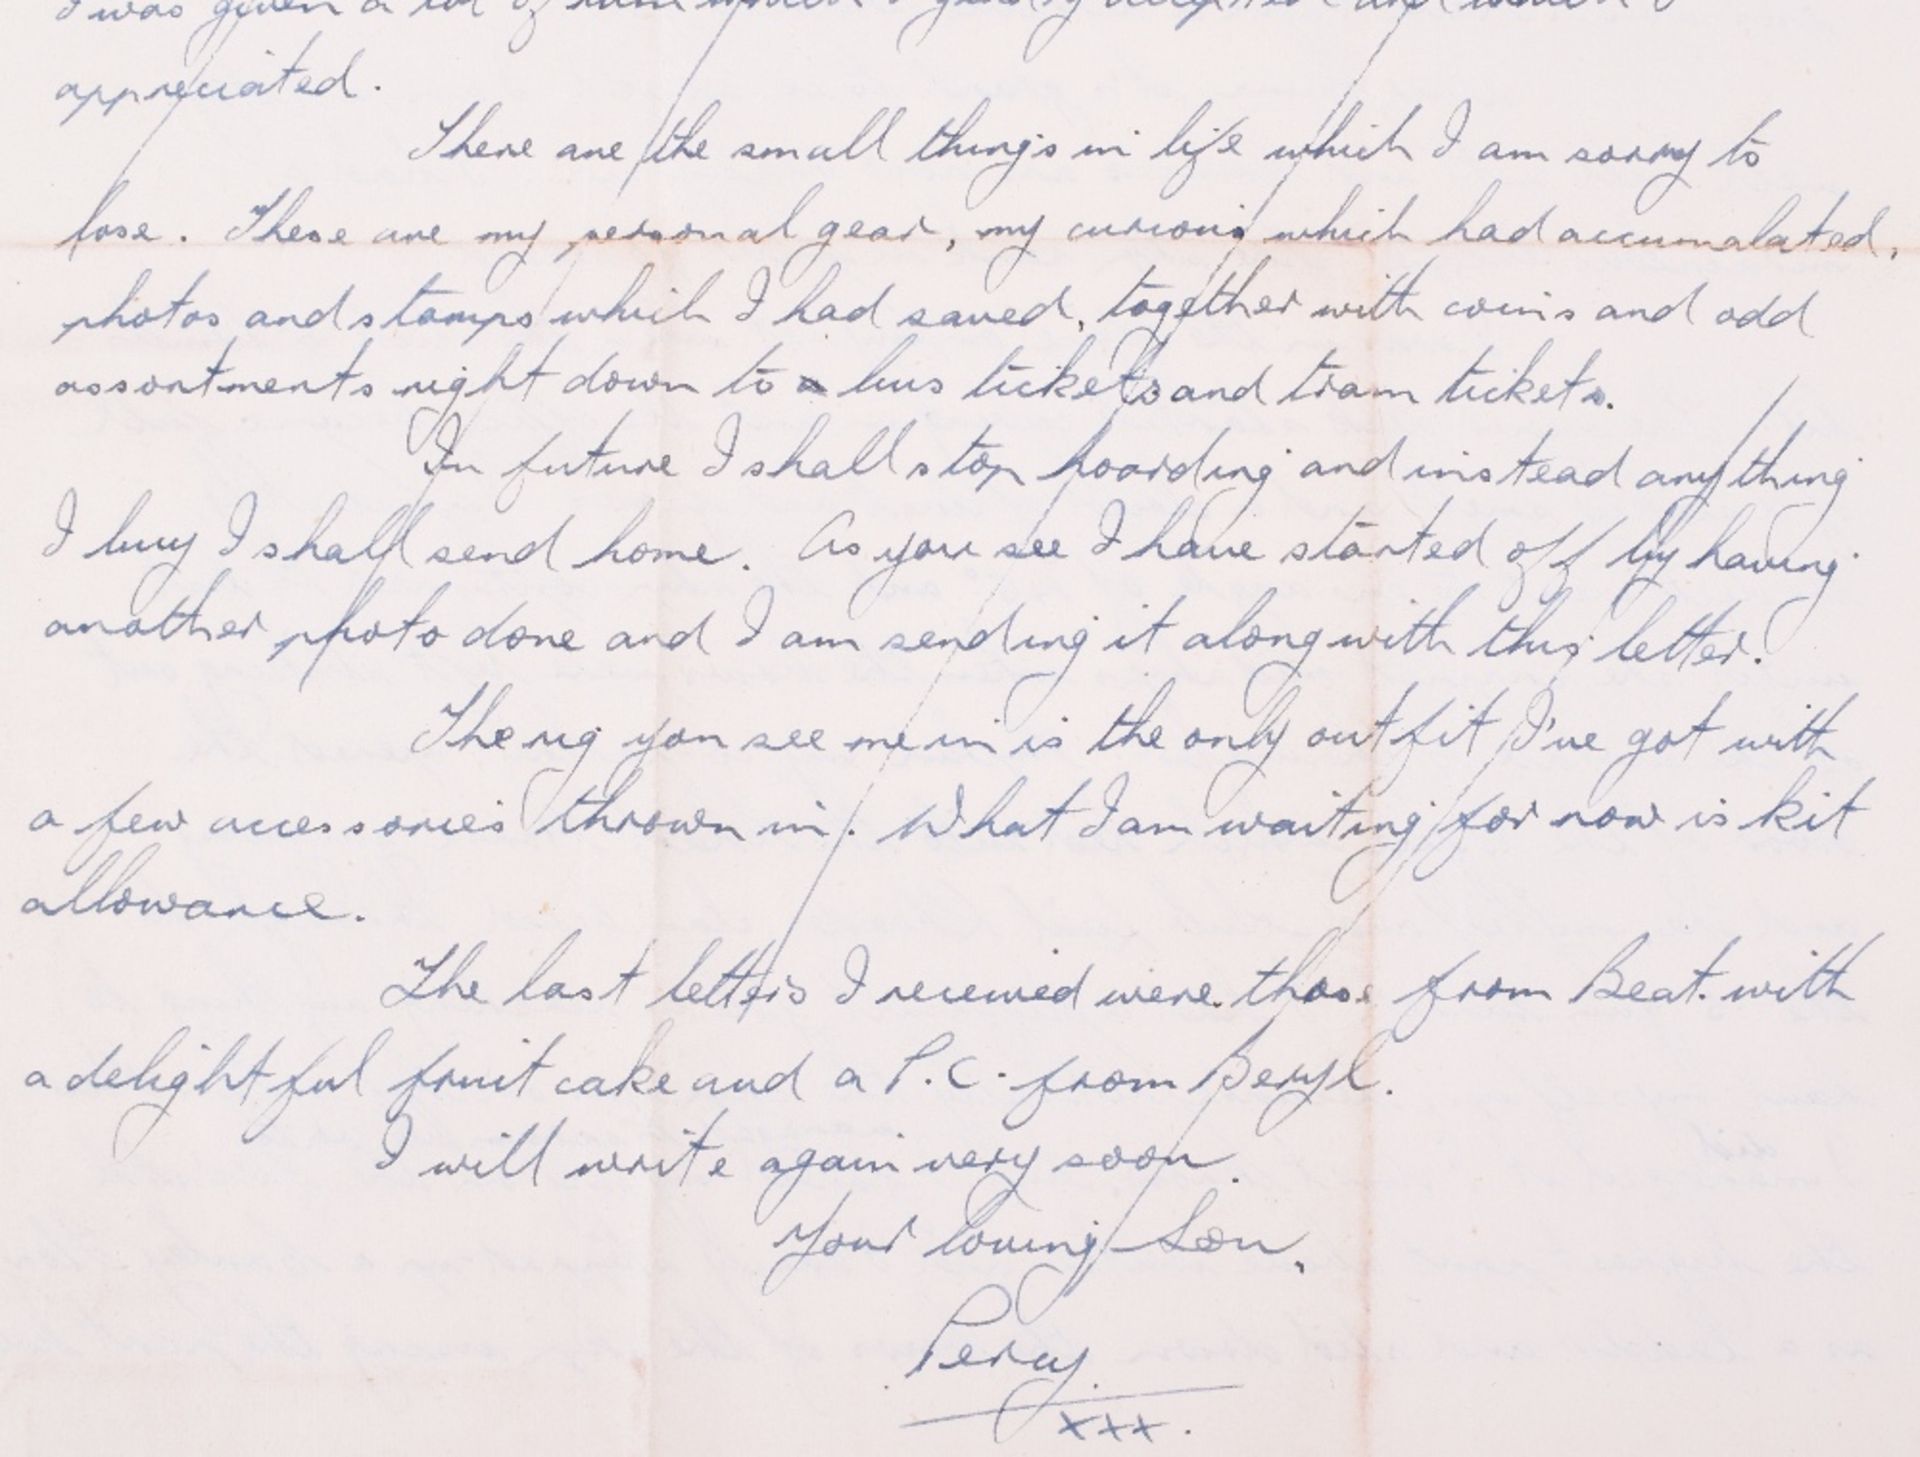 I was given a tot of rum which I gladly accepted and which I
appreciated.
There are the small things in life which I am sorry to
lose. These are my personal gear, my curious which had accumalated,
photos and stamps which I had saved, together with coins and odd
assortments right down to bus tickets and tram tickets.
In future I shall stop hoarding and instead anything
I buy I shall send home. As you see I have started off by having
another photo done and I am sending it along with this letter.
The rig you see me in is the only outfit I've got with
a few accessories thrown in. What I am waiting for now is kit
allowance.
The last letters I received were those from Beat. with
a delightful fruit cake and a P.C. from Beryl.
I will write again very soon.
Your loving Son,
Percy.
xxx.